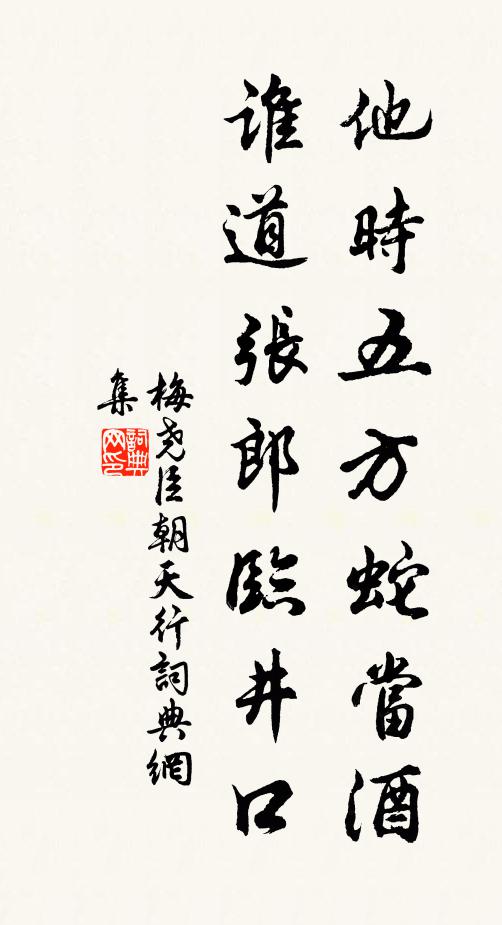 他時五方蛇當酒
誰道張郎臨井口
梅尧臣朝天行詞典網
集
詞典网印